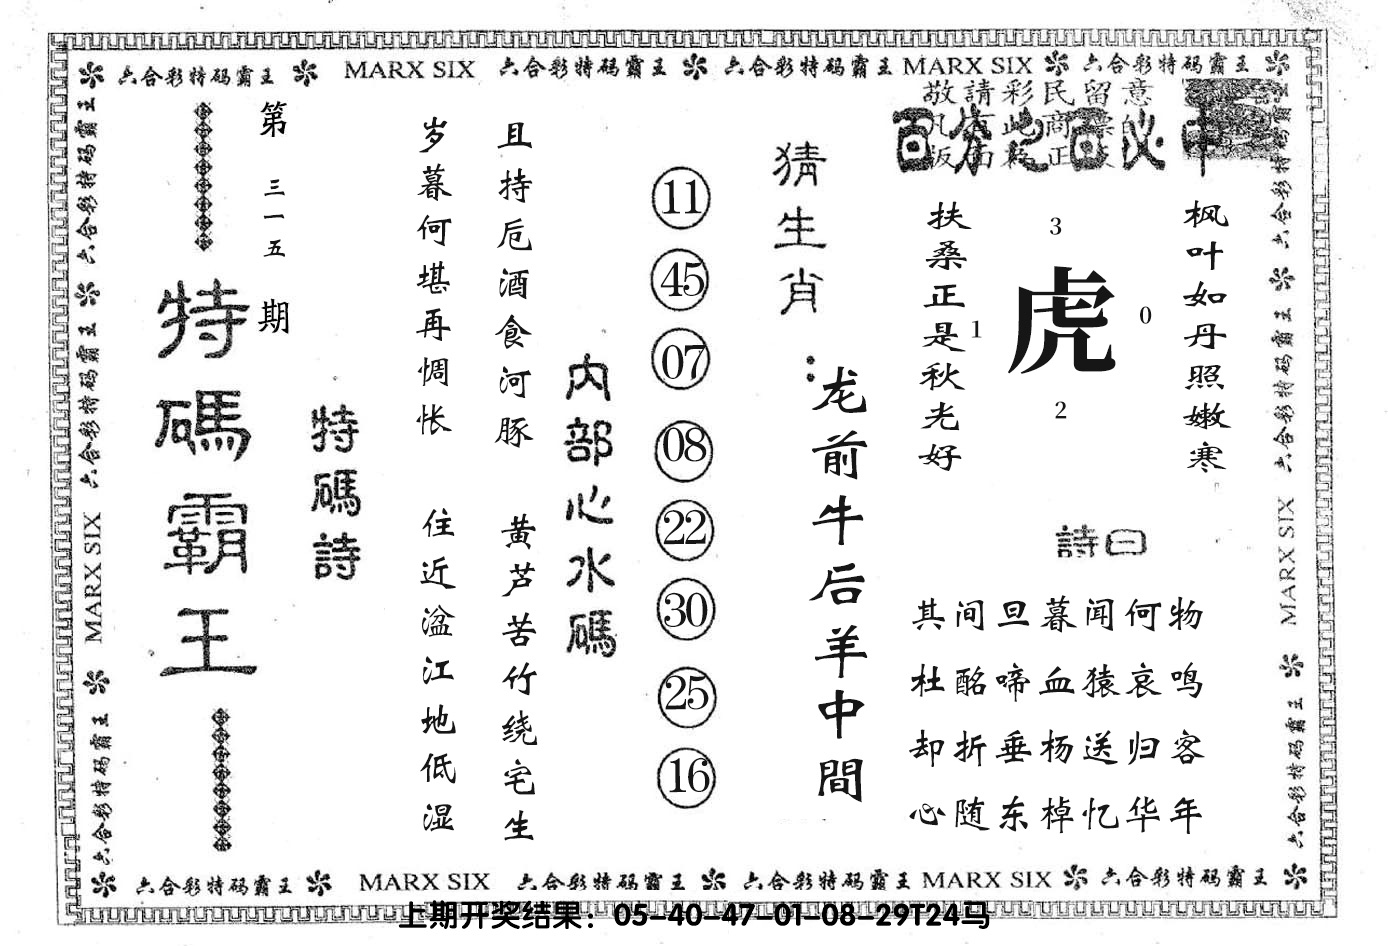 六合彩特码霸王 MARX SIX 六合彩特码霸王 六合彩特码霸王 MARX SIX 六合彩特码霸王
敬請彩民留意
百分之百必中
枫叶如丹照嫩寒
扶桑正是秋光好
3
虎
1
0
2
詩曰
其间旦暮闻何物
杜酩啼血猿哀鸣
却折垂杨送归客
心随东棹忆华年
猜生肖：
龙前牛后羊中間
11
45
07
08
22
30
25
16
内部心水碼
且持卮酒食河豚
黄芦苦竹绕宅生
岁暮何堪再惆怅
住近湓江地低湿
特碼詩
第三一五期
特碼霸王
六合彩特码霸王 六合彩特码霸王 MARX SIX 六合彩特码霸王
六合彩特码霸王 六合彩特码霸王 MARX SIX 六合彩特码霸王
六合彩特码霸王 MARX SIX 六合彩特码霸王 六合彩特码霸王 MARX SIX 六合彩特码霸王
上期开奖结果：05-40-47-01-08-29T24马